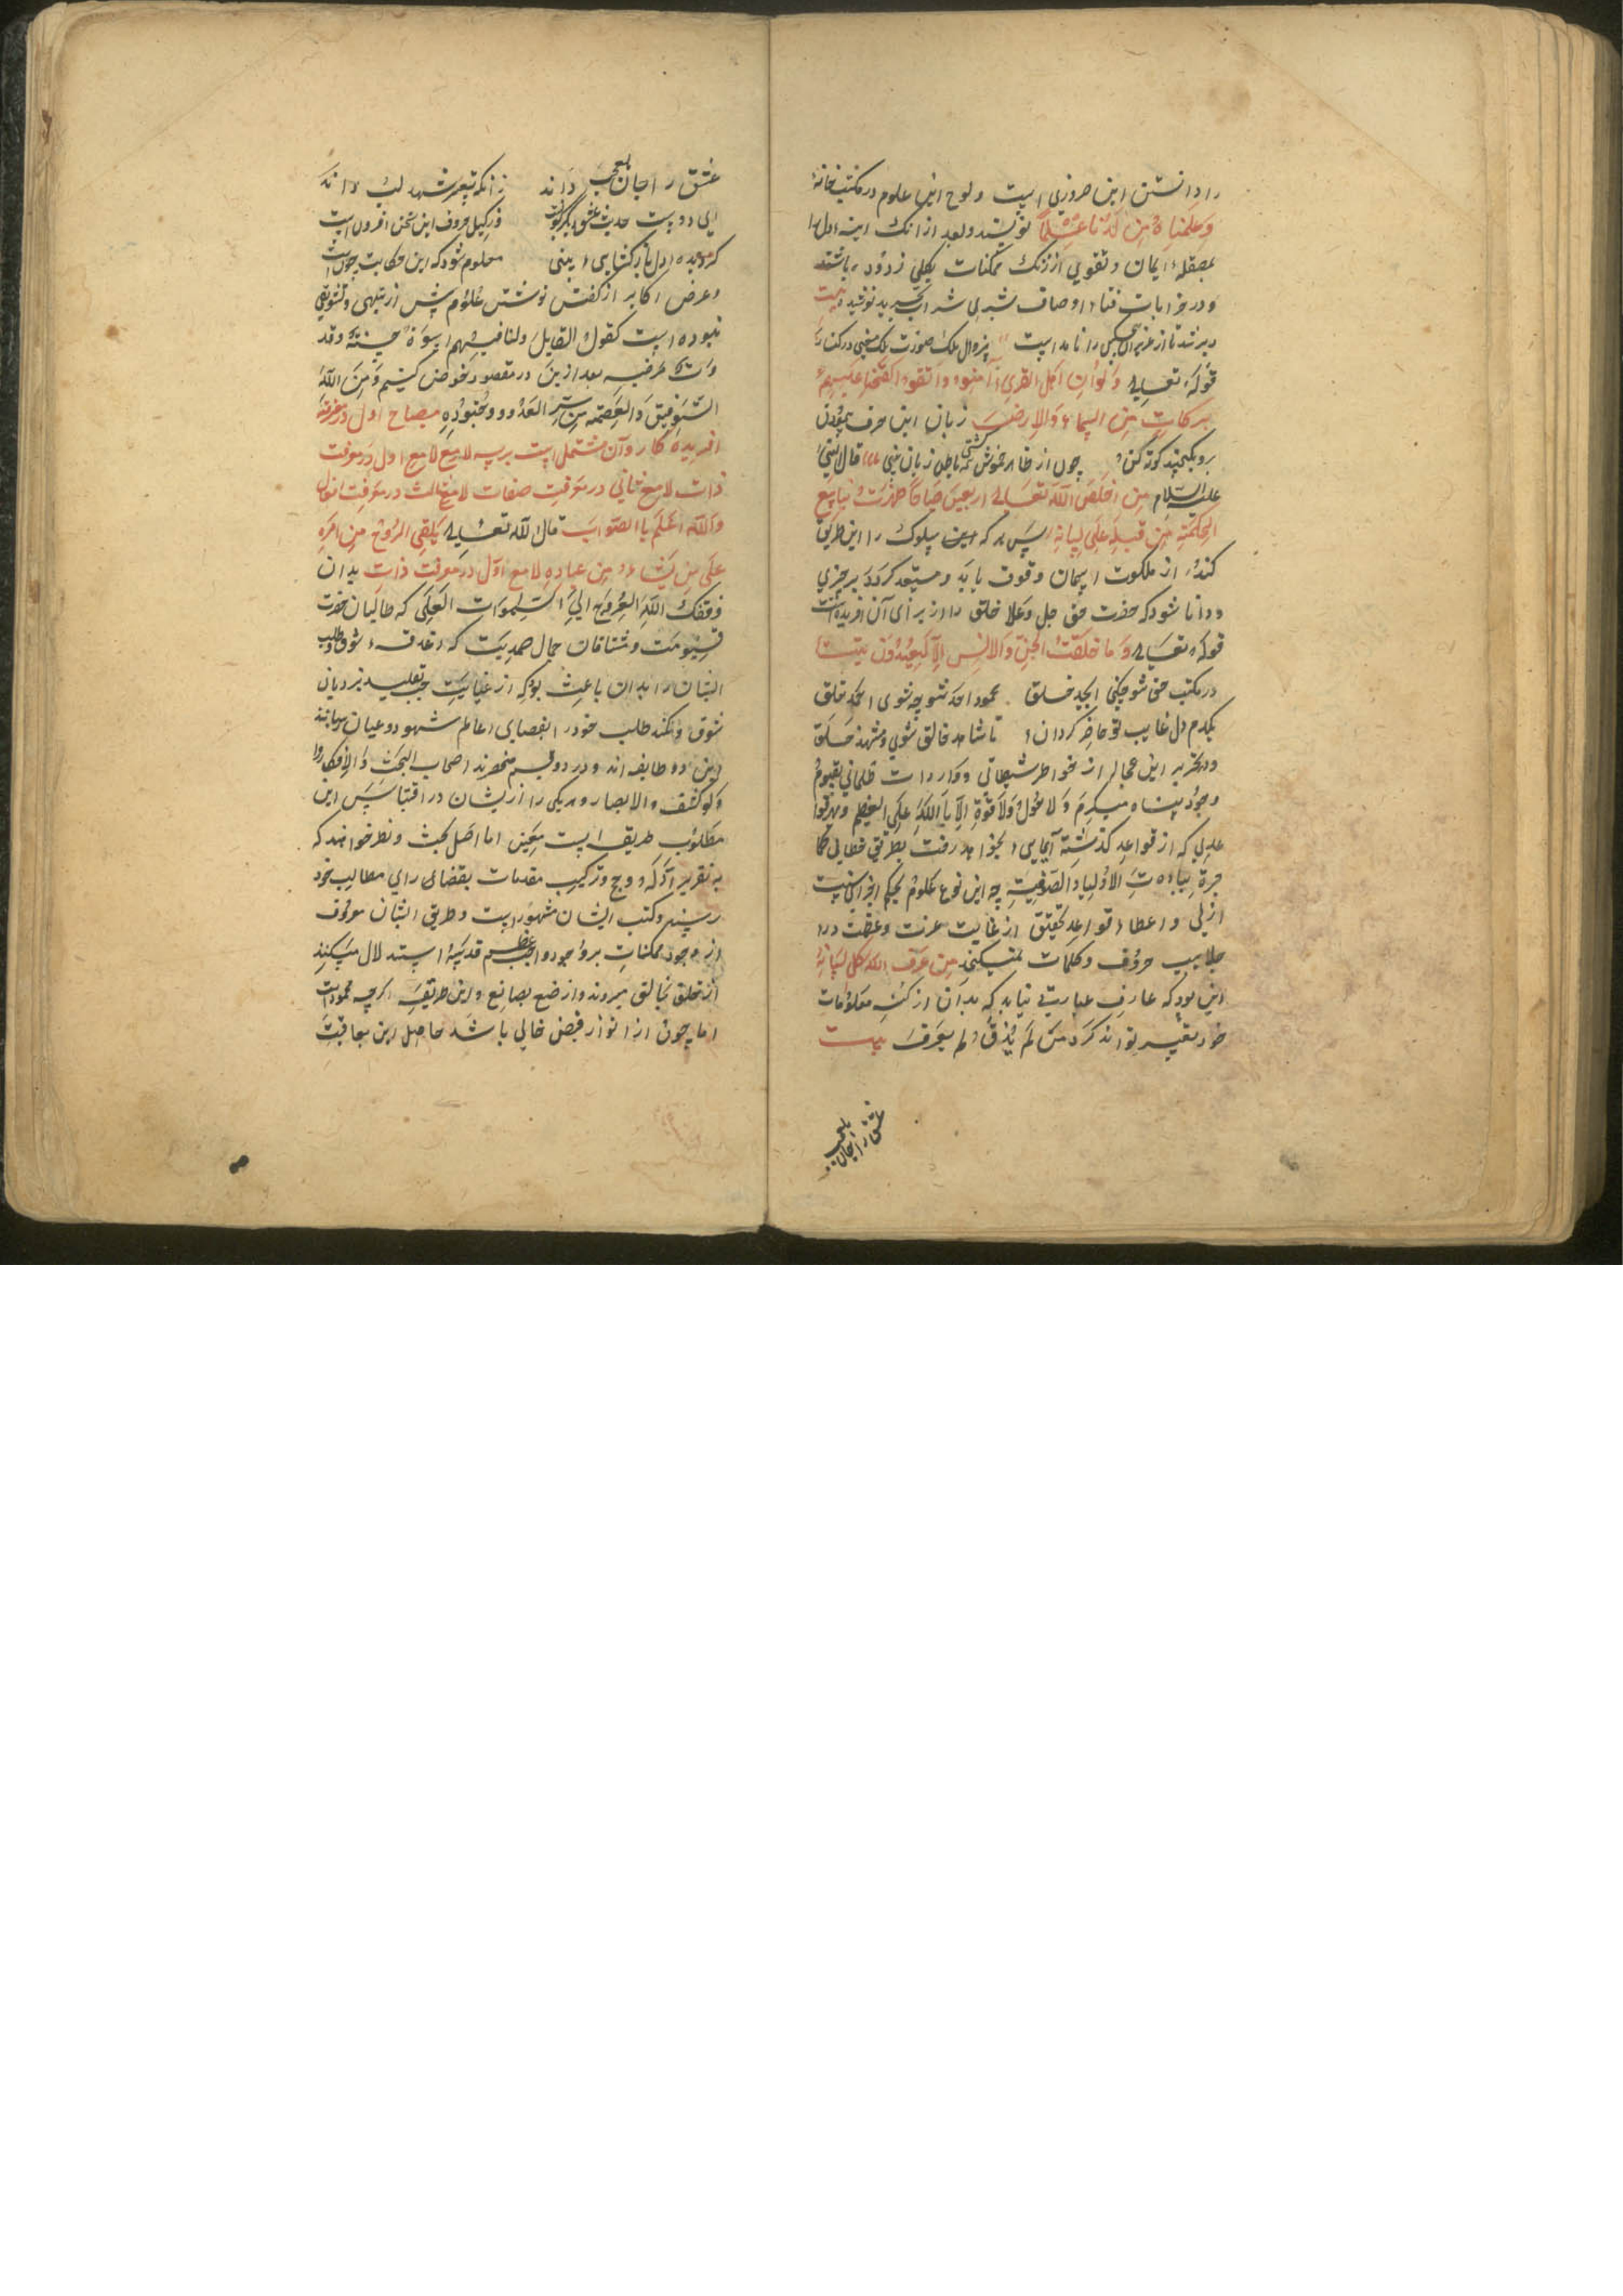 را دانستن این ضروری است و لوح این علوم در مکتب خانهٔ
وَعَلَّمْنَاهُ مِن لَدُنَّا عِلْمًا نویسند و بعد از انک اینه دل را
بمصقلهٔ ایمان و تقوی از زنک ممکنات بکلی زدوده باشند
و در خرابات فناء اوصاف بشری شراب تجرید نوشیده بیت
قوله تعالی وَلَو اَنَّ اَهلَ القُرَی اٰمَنُوا وَاتَّقَوا لَفَتَحنَا عَلَیهِم
بَرَکَاتٍ مِنَ السَّمَاءِ وَالاَرضِ زبان این حرف بیهودن
برو یکچند کوته کن چون از ظاهر خمش کشتی باطن زبان بینی قال النبی
علیه السلام من اخلص الله تعالی اربعین صباحا ظهرت ینابیع
الحکمة من قبله علی لسانه پس هر که سلوک را این طریق
کند از ملکوت اسمان وقوف یابد و مستعد کردد بر چیزی
و دانا شود که حضرت حق جل و علا خلق را از برای آن افریده است
قوله تعالی وَمَا خَلَقتُ الجِنَّ وَالاِنسَ اِلّا لِیَعبُدُونَ بیت
در مکتب حق شو چکنی ابجد خلق محمود احد شو چه شوی احمد خلق
یکدم دل غایب تو حاضر کردان تا شاهد خالق شوی و مشهد خلق
و در تحریر این عجاله از خواطر شیطانی و واردات ظلمانی بقیوم
وجود پناه میکیرم وَلا حَولَ وَلا قُوَّةَ اِلّا بِاللهِ عَلِیِّ العَظِیمِ و بهر قوا
عدی که از قواعد کذشته آسایی بخواهد رفت بطریق خطابی کما
جرة بعادت الاولیا والصوفیة چه این نوع علوم بحکم اخراسیت
ازلی و اعطاء قواعد تحقیق از غایت عزت و عظمت در
جلابیب حروف و کلمات نمیکنجد من عرف الله کل لسانه
این بود که عارف عبارتی نیابد که بدان از کنه معلومات
خود تعبیر تواند کرد من لم یذق لم یعرف بیت
عشق را جان بلعجب
عشق را جان بلعجب داند زانکه تفسیر شهد لب داند
ای دوست حدیث عشق دیکرکونست وز کیل حروف این سخن افزونست
کر دیدهٔ دل باز کشایی و ببینی معلوم شود که این حکایت چونست
و غرض اکابر از کفتن نوشتن علوم بیش از تنبیهی و تشویقی
نبوده است کقول القایل ولنا فیهم اسوة حسنة وقد
بعد ازین در مقصود خوض کنیم وَمِنَ اللهِ
التَّوفِیقُ وَالعِصمَةُ مِن شَرِّ العَدُوِّ وَجُنُودِهِ مصباح اول در معرفة
افریده کار و آن مشتمل است بر سه لامع لامع اول در معرفت
ذات لامع ثانی در معرفت صفات لامع ثالث در معرفت افعال
والله اعلم باالصواب قال الله تعالی یُلقِی الرُّوحَ مِن اَمرِهِ
عَلَی مَن یَشَاءُ مِن عِبَادِهِ لامع اول در معرفت ذات بدان
وفقک الله العروج الی السموات العلی که طالبان حضرت
قیومیت و مشتاقان جمال صمدیت که دغدغهٔ شوق و طلب
ایشان را بدان باعث بود که از غیابت جب تقلید بنردبان
شوق و کمند طلب خود را بفضای عالم شهود و عیان رسانند
این دو طایفه اند و در دو قسم منحصرند اصحاب البحث والافکار و
اولو کشف والابصار و هر یکی را از ایشان در اقتباس این
مطلوب طریقه است معین اما اهل بحث و نظر خواهند که
به تقریر ادله و حجج و ترکیب مقدمات بفضای رای مطالب خود
رسند و کتب ایشان مشهور است و طریق ایشان معروف
از وجود ممکنات بر وجود واجب عظم قدسه استدلال میکنند
از خلق بخالق میروند و از صنع بصانع و این طریقه اکرچه محمود است
اما چون از انوار فیض خالی باشد حاصل این بعاقبت